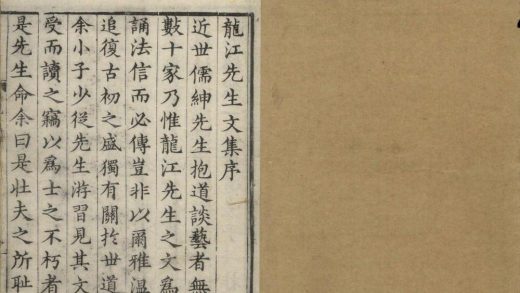 龍江先生文集序
近世儒紳先生抱道談藝者無
數十家乃惟龍江先生之文爲
誦法信而必傳豈非以爾雅溫
追復古初之盛獨有關扵世道
余小子少從先生游習見其文
受而讀之竊以爲士之不朽者
是先生命余曰是壯夫之所耻